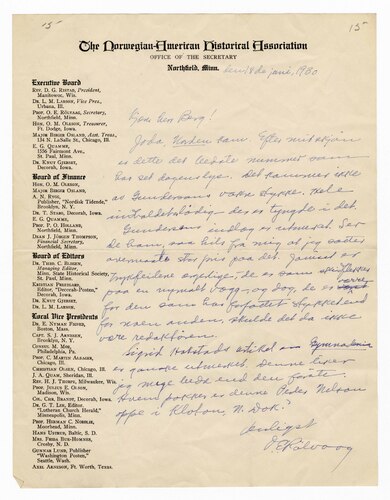 15
15
The Norwegian-American Historical Association
OFFICE OF THE SECRETARY
Northfield, Minn.
den 18de juni, 1930
Executive Board
REV. D. G. RISTAD, President,
Manitowoc, Wis.
DR. L. M. LARSON, Vice Pres.,
Urbana, Ill.
PROF. O. E. RÖLVAAG, Secretary,
Northfield, Minn.
HON. O. M. OLESON, Treasurer,
Ft. Dodge, Iowa.
MAJOR BIRGER OSLAND, Asst. Treas.,
134 N. LaSalle St., Chicago, Ill.
E. G. QUAMME,
1556 Fairmount Ave.,
St. Paul, Minn.
DR. KNUT GJERSET,
Decorah, Iowa.
Board of Finance
HON. O. M. OLESON,
MAJOR BIRGER OSLAND,
A. N. RYGG,
Publisher, "Nordisk Tidende,"
Brooklyn, N. Y.
DR. T. STABO, Decorah, Iowa.
E. G. QUAMME,
PROF. P. O. HOLLAND,
Northfield, Minn.
DEAN J. JÖRGEN THOMPSON,
Financial Secretary,
Northfield, Minn.
Board of Editors
DR. THEO. C. BLEGEN,
Managing Editor,
Minn. State Historical Society,
St. Paul, Minn.
KRISTIAN PRESTGARD,
Editor, "Decorah-Posten,"
Decorah, Iowa
DR. KNUT GJERSET,
DR. L. M. LARSON,
Local Vice Presidents
DR. E. NYMAN FIGVED,
Boston, Mass.
CAPT. S. J. ARNESEN,
Brooklyn, N. Y.
CONSUL M. MOE,
Philadelphia, Pa.
PROF. C. MARTIN ALSAGER,
Chicago, Ill.
CHRISTIAN OLSEN, Chicago, Ill.
J. A. QUAM, Sheridan, Ill.
REV. H. J. THORPE, Milwaukee, Wis.
PROF. JULIUS E. OLSON,
Madison, Wis.
COL. CHR. BRANDT, Decorah, Iowa
DR. G. T. LEE, Editor,
"Lutheran Church Herald,"
Minneapolis, Minn.
PROF. HERMAN C. NORDLIE,
Moorhead, Minn.
HANS USTRUD, Baltic, S. D.
MRS. FRIDA BUE-HOMNES,
Crosby, N. D.
GUNNAR LUND, Publisher
"Washington Posten,"
Seattle, Wash.
AXEL ARNESON, Ft. Worth, Texas.
Kjære herr Berg!
Joda, Norden kom. Efter mit skjøn
er dette det bedste nummer som
har set dagens lys. Det kommer ikke
av Gundersons vakre stykke. Hele
indholdet
det er tyngde i det.
Gundersons indlæg er utmerket. Ser
De ham, saa hils fra mig at jeg sætter
overmaate stor pris paa det.
er de
paa en
og dog, de er
for den som har forfattet stykket end
for noen anden, skulde det da ikke
være redaktøren.
Sigrid artikel om Gymnasiene
er ganske utmerket. Denne liker
jeg meget bedre end den første.
Hvem pokker er denne Peder Nelson
oppe i Kloten, N. Dak?
Venligst
O E Rølvaag